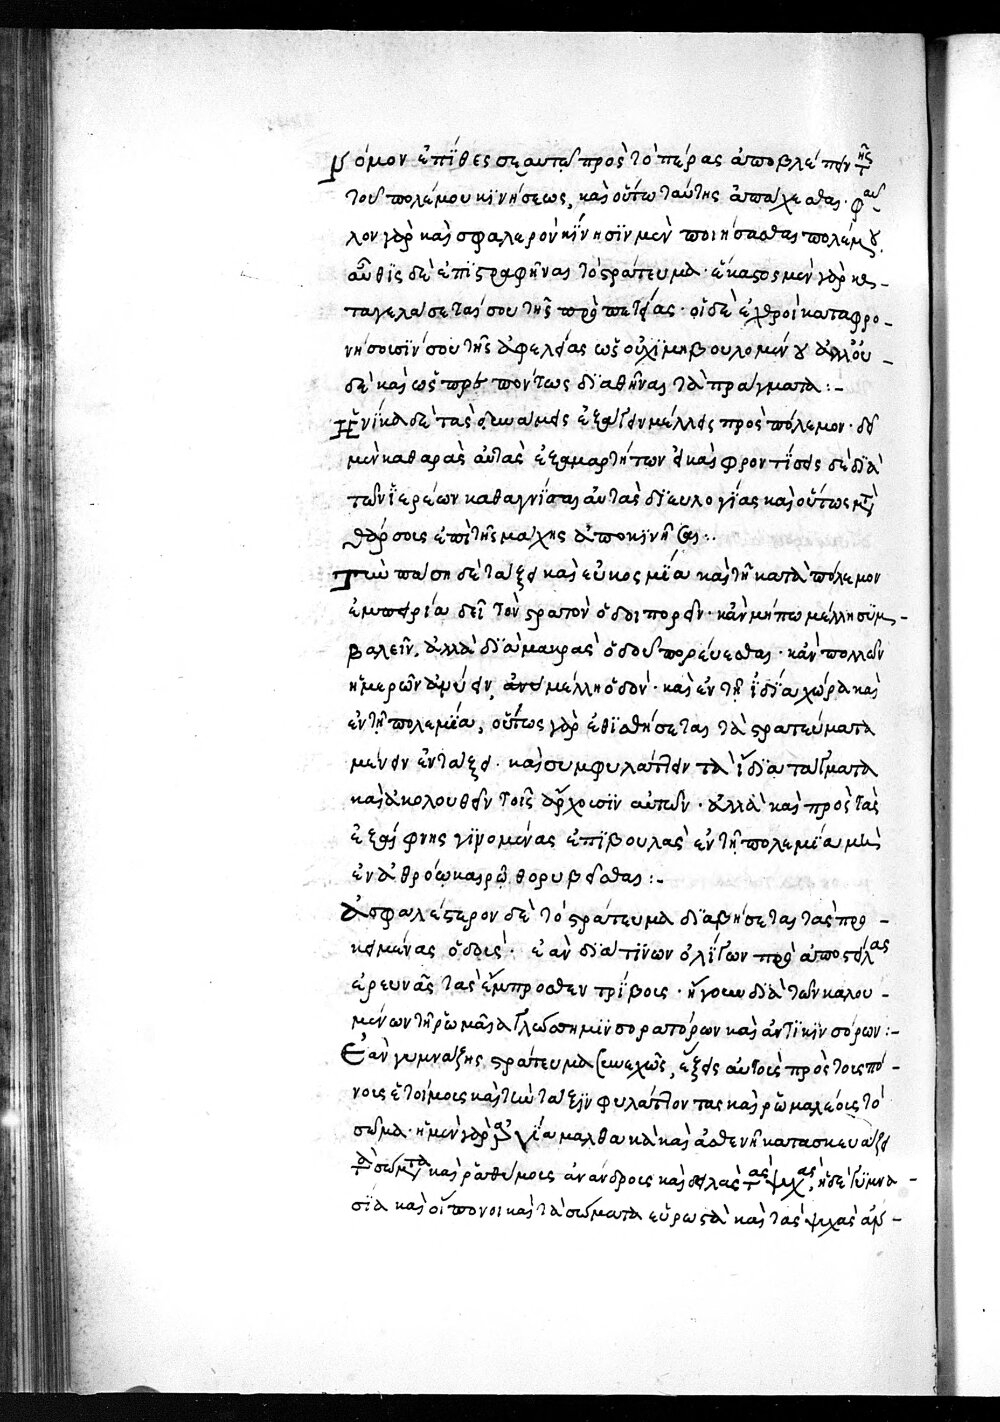 Νόμον ἐπίθες σεαυτῶ πρὸς τὸ πέρας ἀποβλέπειν τῆς
τοῦ πολέμου κινήσεως, καὶ οὕτω ταύτης ἀπάρχεσθαι. φαῦ-
λον γὰρ καὶ σφαλερὸν κίνησιν μὲν ποιήσασθαι πολέμου.
αὖθις δὲ ἐπιστραφῆναι τὸ στράτευμα. ἕκαστος μὲν γὰρ κα-
ταγελάσεταί σου τῆς προπετείας. οἱ δὲ ἐχθροὶ καταφρο-
νήσουσίν σου τῆς ἀφελείας ὡς οὐχὶ μὴ βουλομένου ἀλλ' οὐ-
δὲ καὶ ὡς πρέποντως διαθῆναι τὰ πράγματα :-
Ἡνίκα δὲ τὰς δυνάμεις ἐξάγειν μέλλεις πρὸς πόλεμον. δεῖ
μὲν καθαρὰς αὐτὰς ἐξ ἁμαρτημάτων εἶναι φροντίσεις δὲ διὰ
τῶν ἱερέων καθαγνίσαι αὐτὰς δι' εὐλογίας καὶ οὕτως μετὰ
θάρσους ἐπὶ τῆς μάχης ἀποκινῆσαι :.
Τῶ πάση δὲ τάξει καὶ εὐκοσμία καὶ τῆ κατὰ πόλεμον
ἐμπειρία δεῖ τὸν στρατὸν ὁδοιπορεῖν. κἂν μήπω μέλλη συμ-
βαλεῖν, ἀλλὰ διὰ μακρᾶς ὁδοῦ πορεύεσθαι. κἂν πολλῶν
ἡμερῶν ἀνύειν, μέλλη ὁδόν. καὶ ἐν τῆ ἰδία χώρα καὶ
ἐν τῆ πολεμία, οὕτως γὰρ ἐθισθήσεται τὰ στρατεύματα
μένειν ἐν τάξει. καὶ συμφυλάττειν τὰ ἴδια τάγματα
καὶ ἀκολουθεῖν τοῖς ἄρχουσιν αὐτῶν. ἀλλὰ καὶ πρὸς τὰς
ἐξαίφνης γινομένας ἐπιβουλὰς ἐν τῆ πολεμία μὴ
ἐν ἀθρόω καιρῶ θορυβεῖσθαι :-
Ἀσφαλέστερον δὲ τὸ στράτευμα διαβήσεται τὰς προ-
κειμένας ὁδοὺς. ἐὰν διά τινων ὀλίγων προαποστείλας
ἐρευνᾶς τὰς ἔμπροσθεν τρίβους. ἤγουν διὰ τῶν καλου-
μένων τῆ ῥωμαία γλώσση μινσορατόρων καὶ ἀντικινσόρων :-
Ἐὰν γυμνάζης στράτευμα συνεχῶς, ἕξεις αὐτοὺς πρὸς τοὺς πό-
νους ἑτοίμους καὶ τὴν τάξιν φυλάττοντας καὶ ῥωμαλέους τὸ
σῶμα. ἡ μὲν γὰρ ἀργία μαλθακὰ καὶ ἀσθενῆ κατασκευάζει
τὰ σώματα καὶ ῥαθύμους ἀνάνδρους καὶ δειλὰς τὰς ψυχάς, ἡ δὲ γυμνα-
σία καὶ οἱ πόνοι καὶ τὰ σώματα εὔρωστα καὶ τὰς ψυχὰς ἀν-